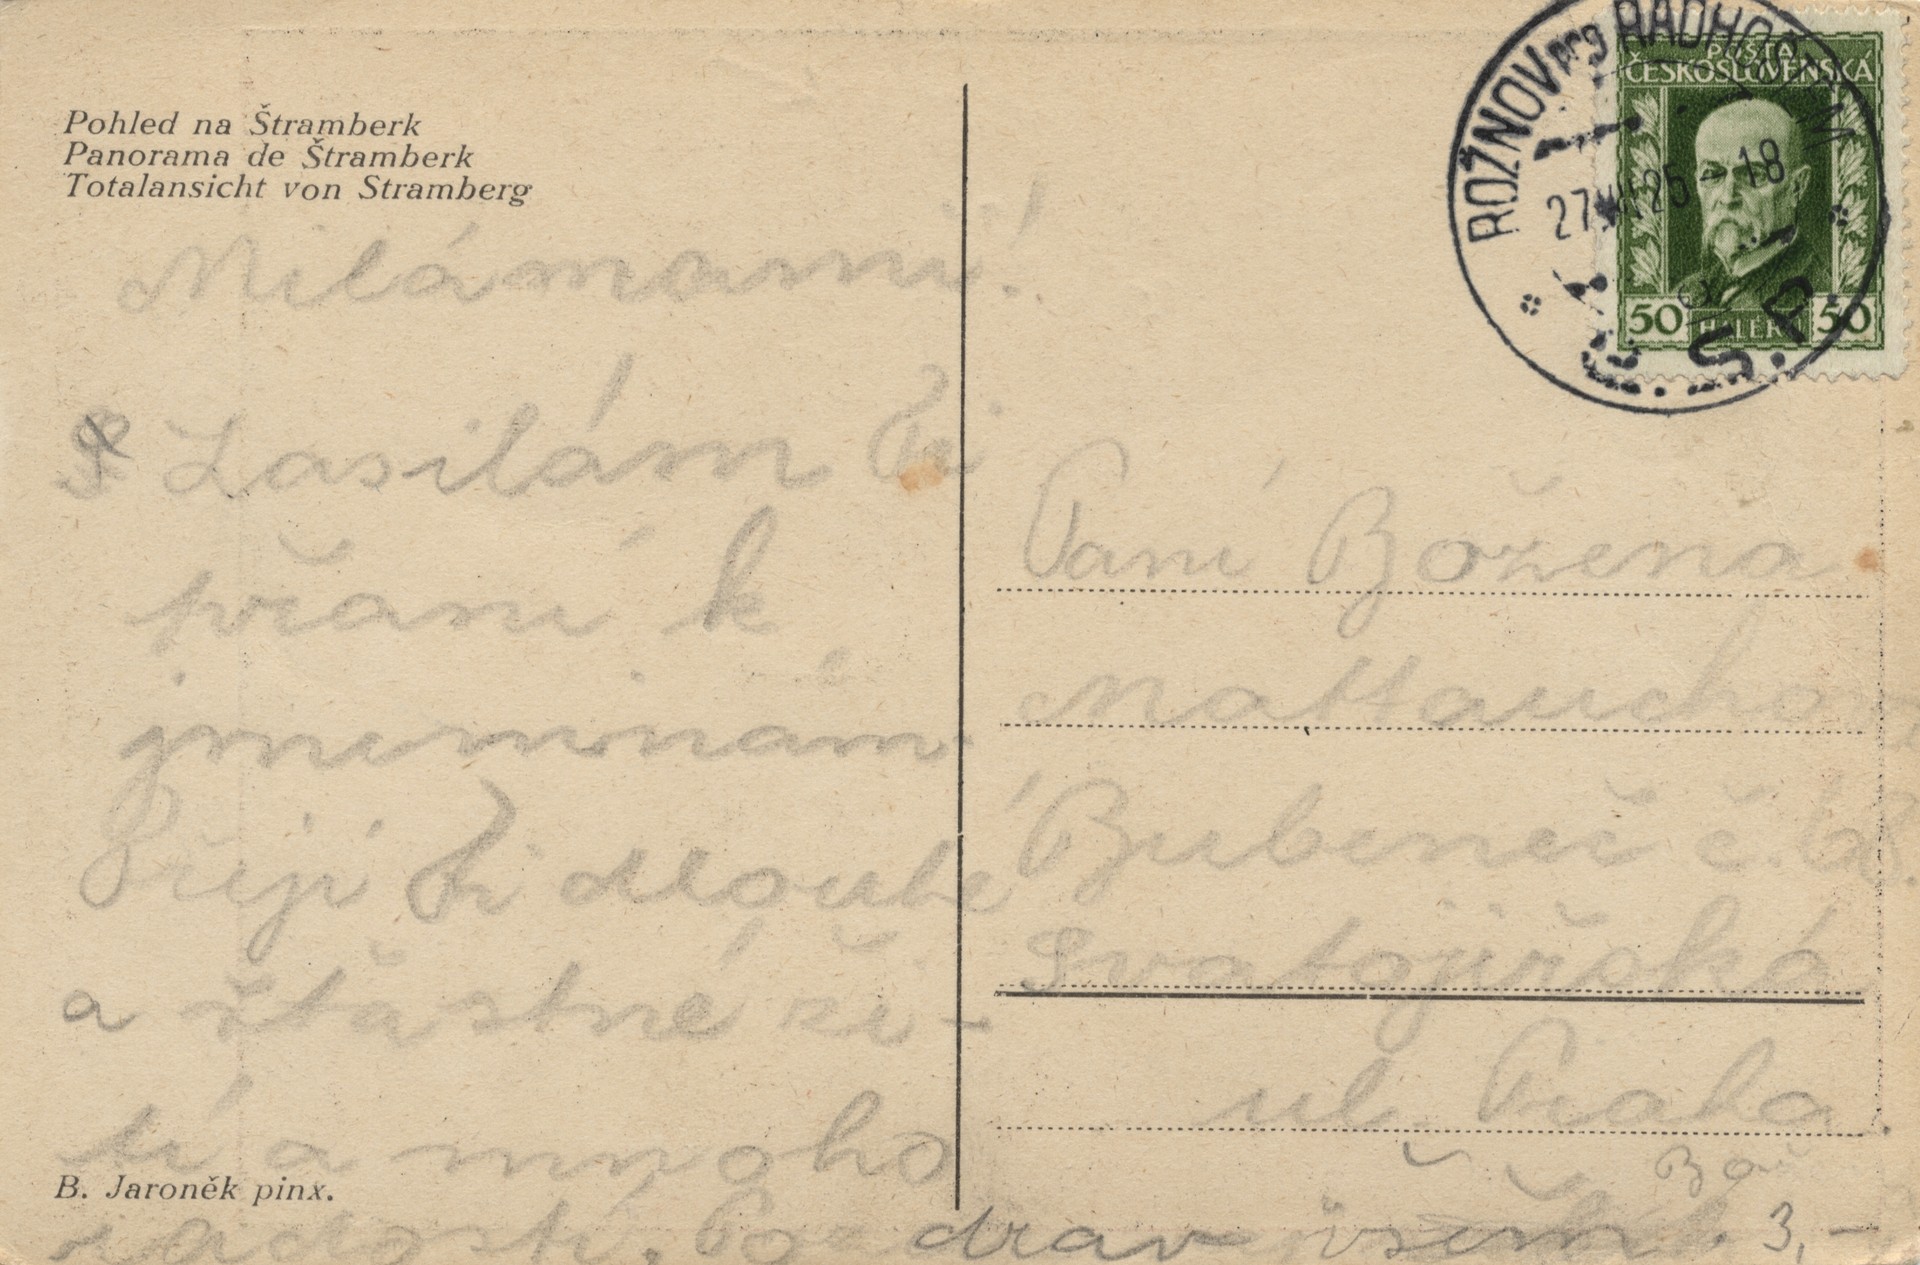 Pohled na Štramberk
Panorama de Štramberk
Totalansicht von Stramberg
Milá mami!
Zasílám Ti
přání k
jmeninám.
Přeji Ti dlouhé
a štastné ži-
tí a mnoho
radosti. Pozdrav všem
B. Jaroněk pinx.
ROŽNOV p. RADHOŠTĚM
27 VIII 26 - 18
Č.S.P.
POŠTA
ČESKOSLOVENSKÁ
50 HALÉŘŮ 50
Paní Božena
Mattauchová
Bubeneč č.
Svatojiřská
ul. Praha.
3,-